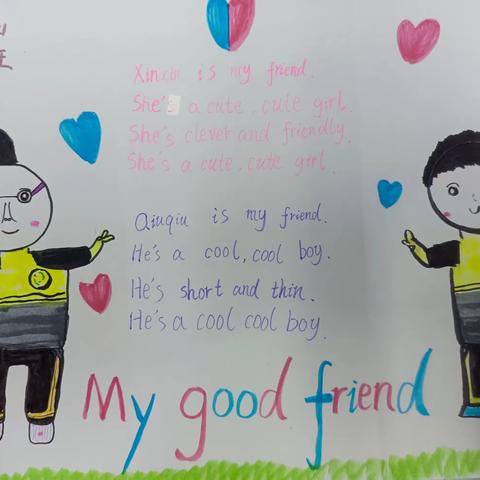 Xinxin is my friend.
She's a cute, cute girl.
She's clever and friendly.
She's a cute, cute girl.
Qiuqiu is my friend.
He's a cool, cool boy.
He's short and thin.
He's a cool cool boy.
My good friend